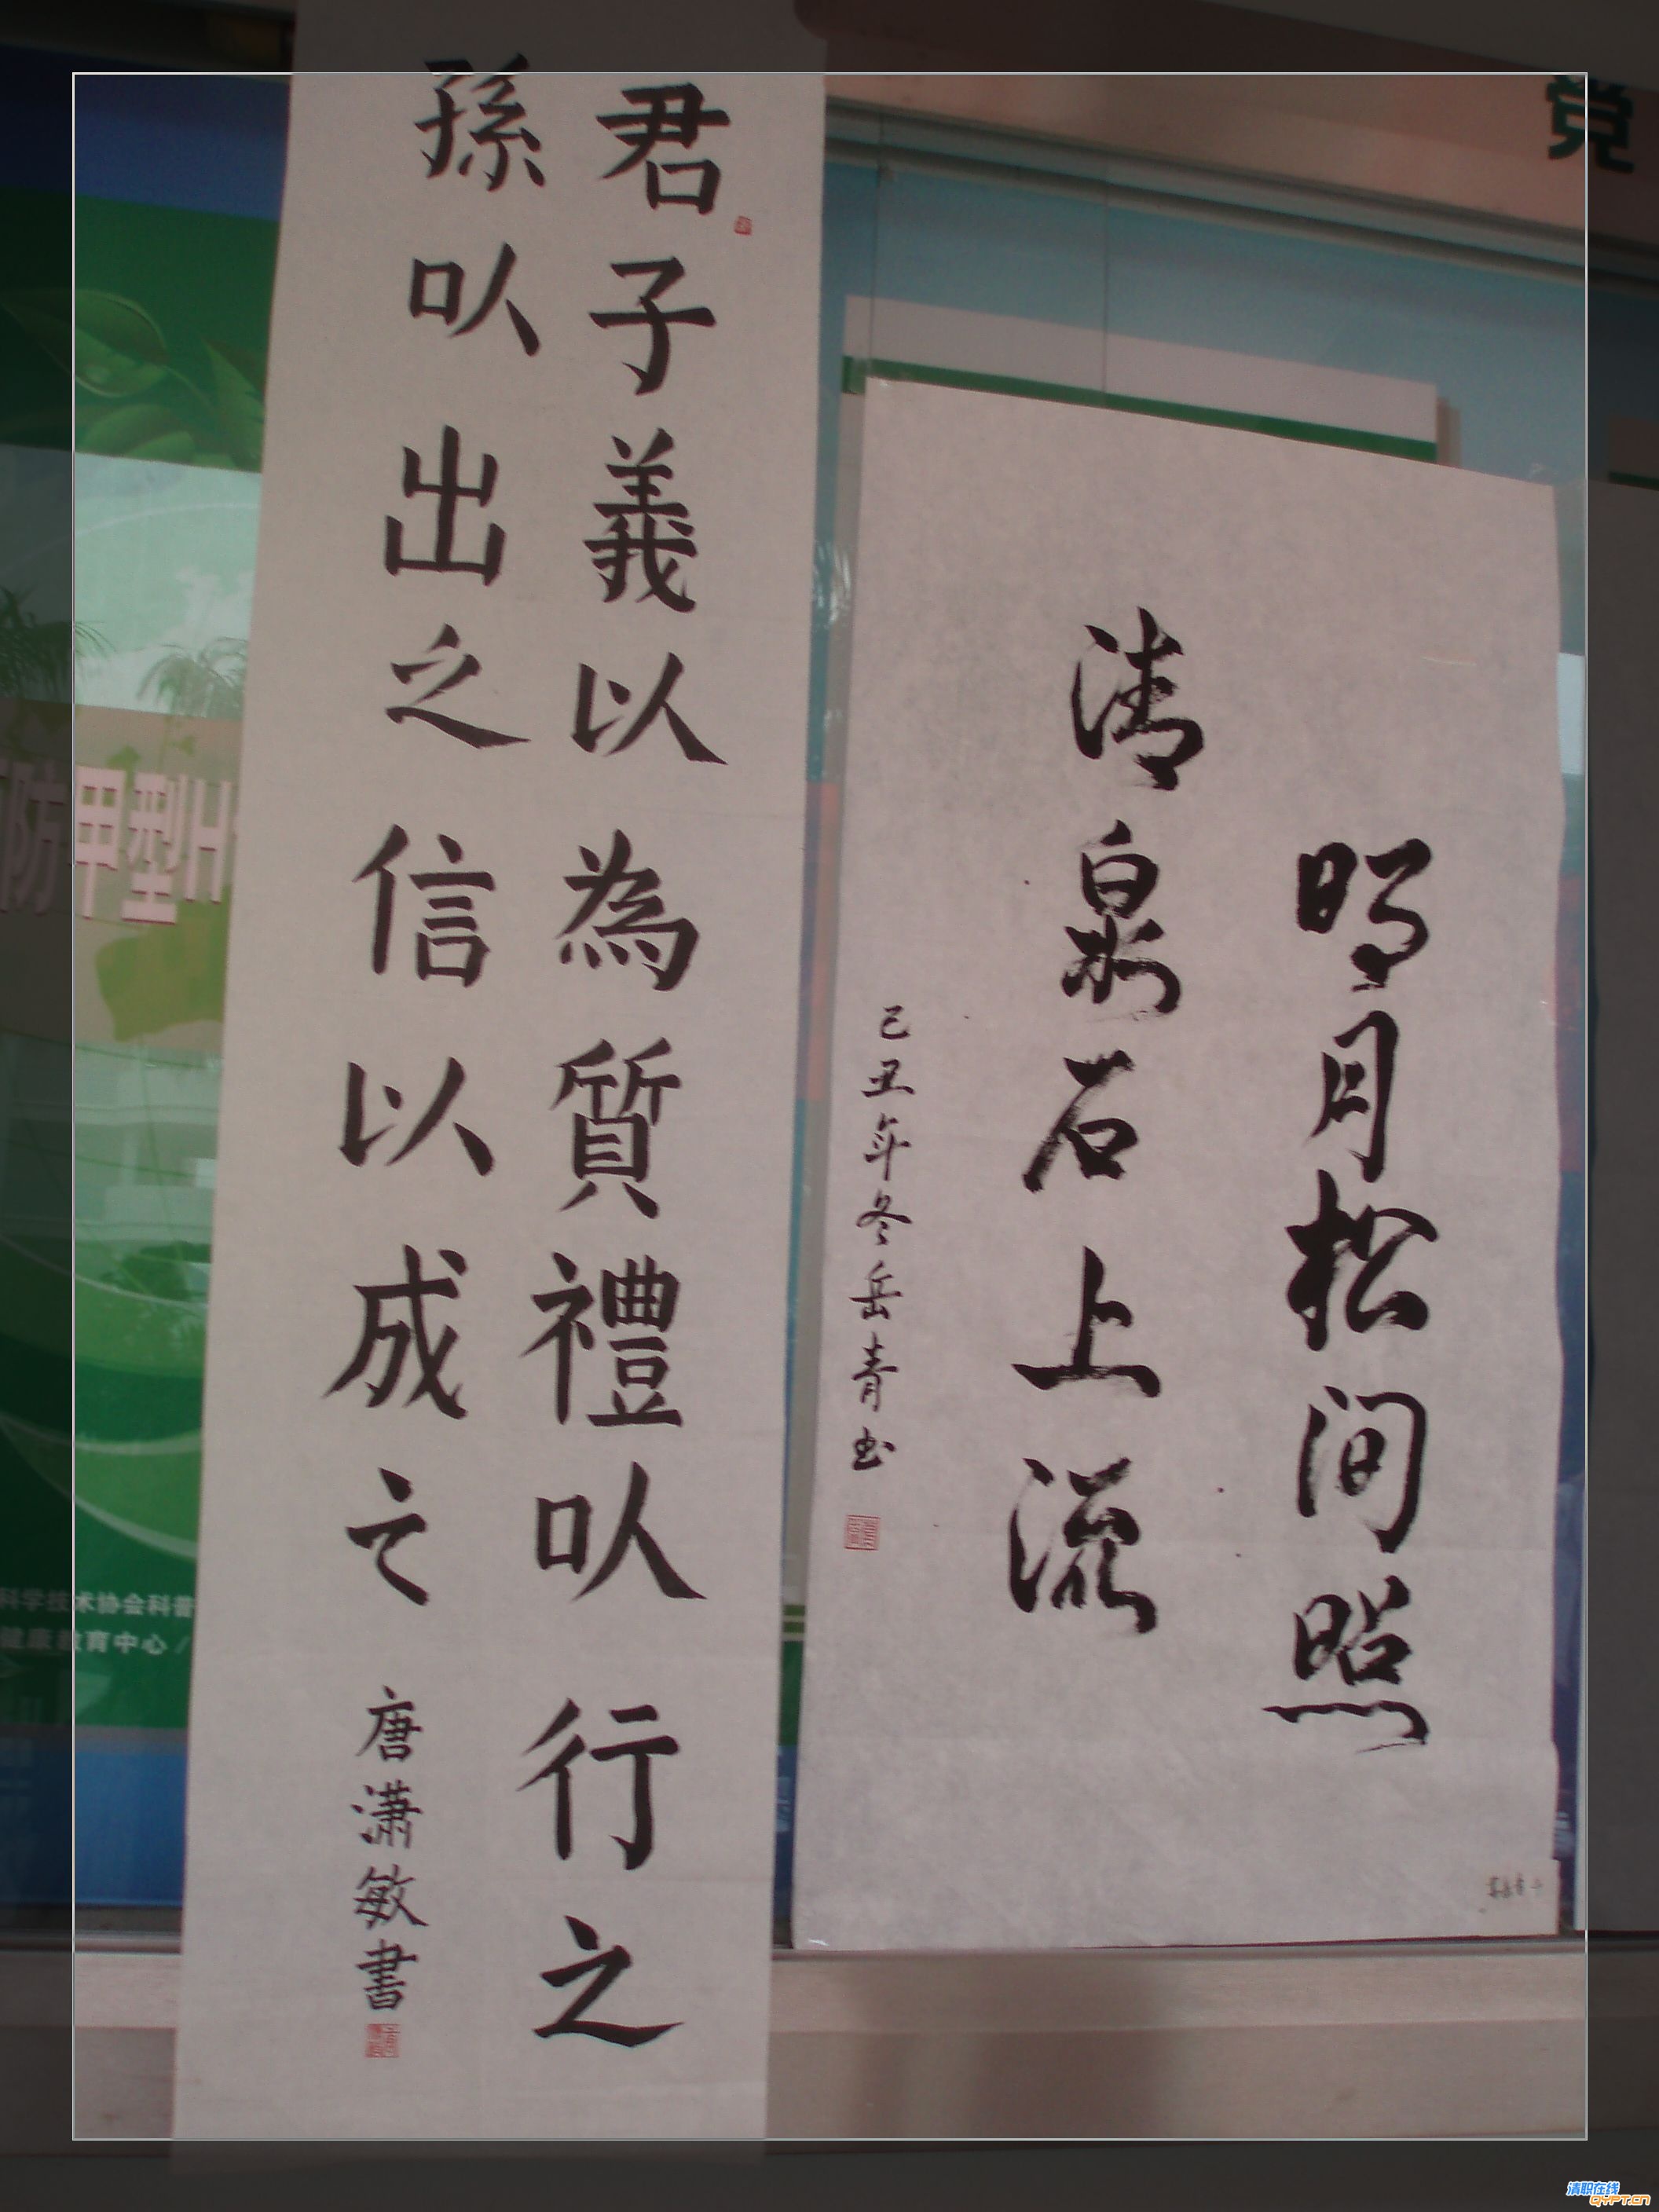 君子義以為質禮以行之
孫以出之信以成之
唐潇敏書
明月松间照
清泉石上流
己丑年冬岳青书
党
防甲型H
科学技术协会科普
健康教育中心/
清职在线
QYPT.CN